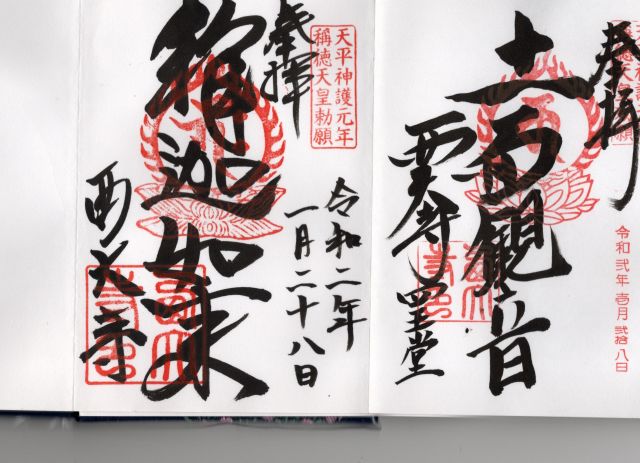 奉拝
令和弐年 壱月 弐拾八日
十一面観音
西大寺 四王堂
天平神護元年
稱徳天皇勅願
奉拝
令和二年
一月二十八日
釋迦如来
西大寺